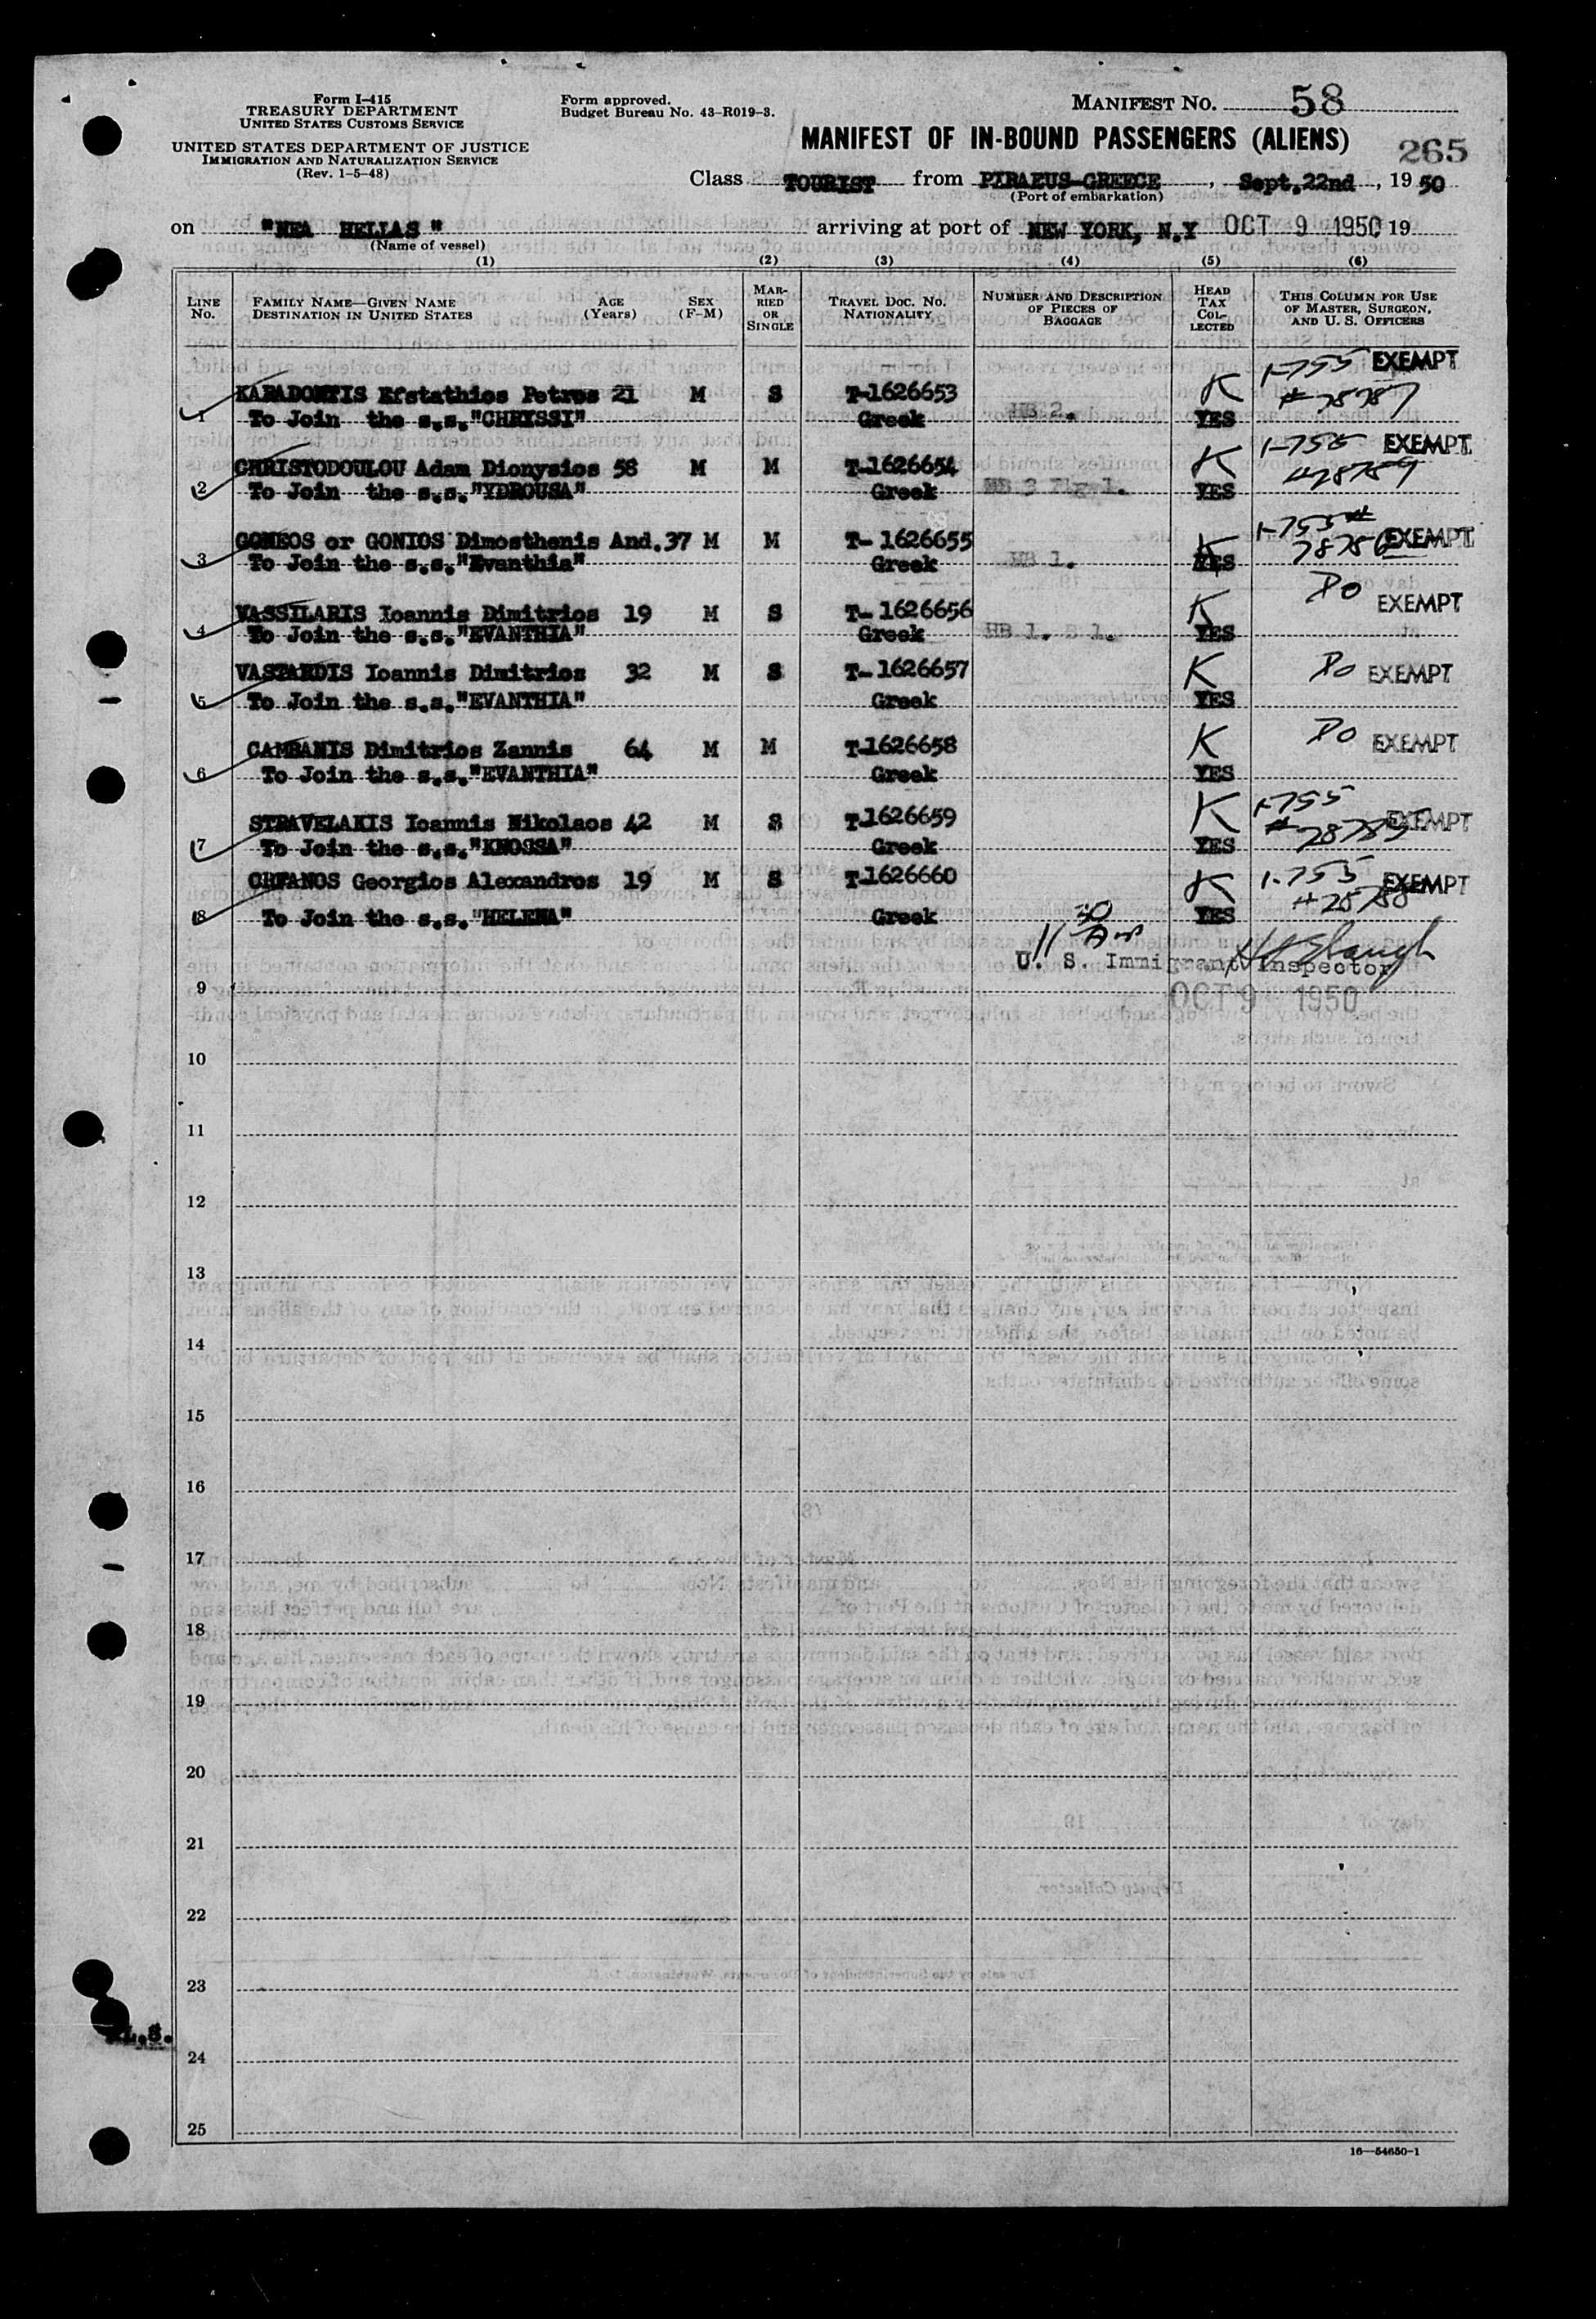 Form I-415
TREASURY DEPARTMENT
UNITED STATES CUSTOMS SERVICE
UNITED STATES DEPARTMENT OF JUSTICE
IMMIGRATION AND NATURALIZATION SERVICE
(Rev. 1-5-48)
Form approved.
Budget Bureau No. 43-R019-3.
MANIFEST NO. 58
MANIFEST OF IN-BOUND PASSENGERS (ALIENS)
265
Class TOURIST from PIRAEUS-GREECE, Sept.22nd, 1950
(Port of embarkation)
on "NEA HELLAS" arriving at port of NEW YORK, N.Y OCT 9 1950 19
(Name of vessel)
(1) (2) (3) (4) (5) (6)
LINE NO. FAMILY NAME—GIVEN NAME DESTINATION IN UNITED STATES AGE (Years) SEX (F-M) MARRIED OR SINGLE TRAVEL DOC. NO. NATIONALITY NUMBER AND DESCRIPTION OF PIECES OF BAGGAGE HEAD TAX COLLECTED THIS COLUMN FOR USE OF MASTER, SURGEON, AND U. S. OFFICERS
KARADONTIS Efstathios Petros 21 M S T-1626653 K 1-755 EXEMPT
1 To Join the s.s."CHRYSSI" Greek HB 2. YES #28787
CHRISTODOULOU Adam Dionysios 58 M M T-1626654 K 1-755 EXEMPT
2 To Join the s.s."YDROUSA" Greek YES
GONEOS or GONIOS Dimosthenis And. 37 M M T-1626655 K 1-755 # EXEMPT
3 To Join the s.s."Evanthia" Greek HB 1. YES
VASSILARIS Ioannis Dimitrios 19 M S T-1626656 K Do EXEMPT
4 To Join the s.s."EVANTHIA" Greek HB 1. B 1. YES
VASTARDIS Ioannis Dimitrios 32 M S T-1626657 K Do EXEMPT
5 To Join the s.s."EVANTHIA" Greek YES
CAMBANIS Dimitrios Zannis 64 M M T-1626658 K Do EXEMPT
6 To Join the s.s."EVANTHIA" Greek YES
STRAVELAKIS Ioannis Nikolaos 42 M S T-1626659 K 1-755 EXEMPT
7 To Join the s.s."KNOSSA" Greek YES
ORFANOS Georgios Alexandros 19 M S T-1626660 K 1-755 EXEMPT
8 To Join the s.s."HELENA" Greek YES
11 30 Am
U. S. Immigrant Inspector
9 OCT 9 1950
10
11
12
13
14
15
16
17
18
19
20
21
22
23
24
25
16—54650-1